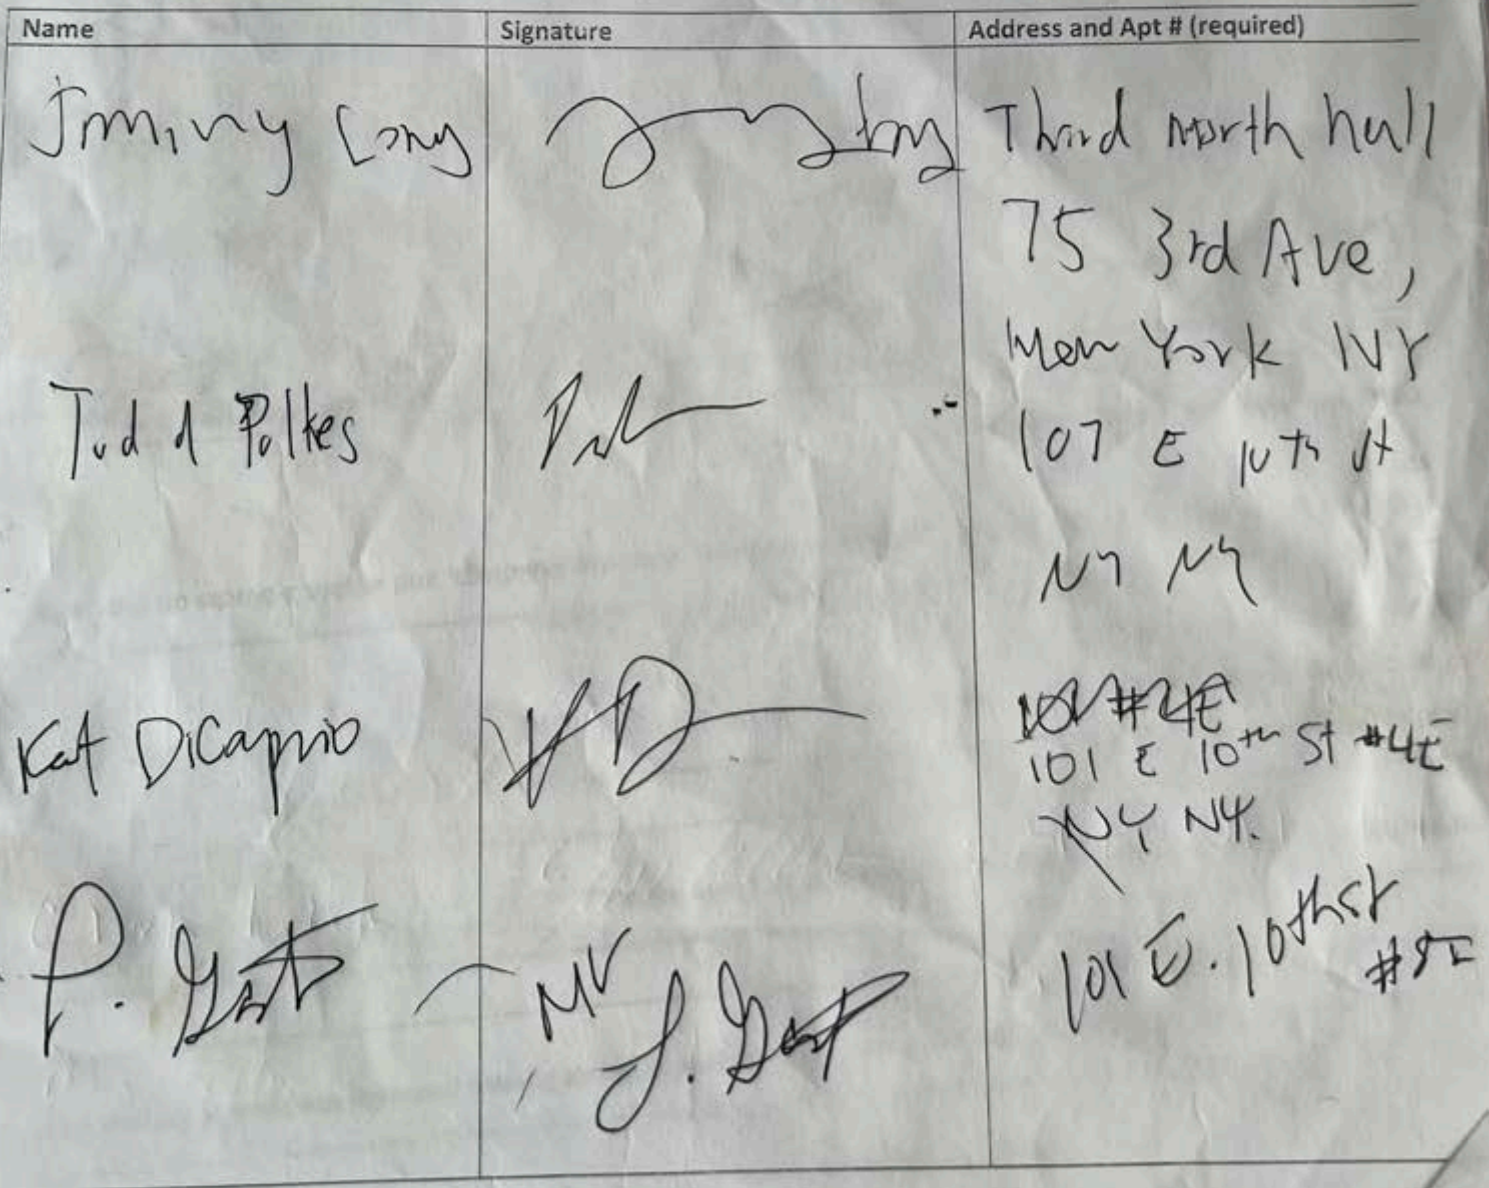 Name Signature Address and Apt # (required)
Jimmy Long Third north hall
75 3rd Ave,
New York NY
Todd Polkes 107 E 10th St
NY NY
Kat DiCaprio 101 E 10th St #4E
NY NY.
P. 101 E. 10th St